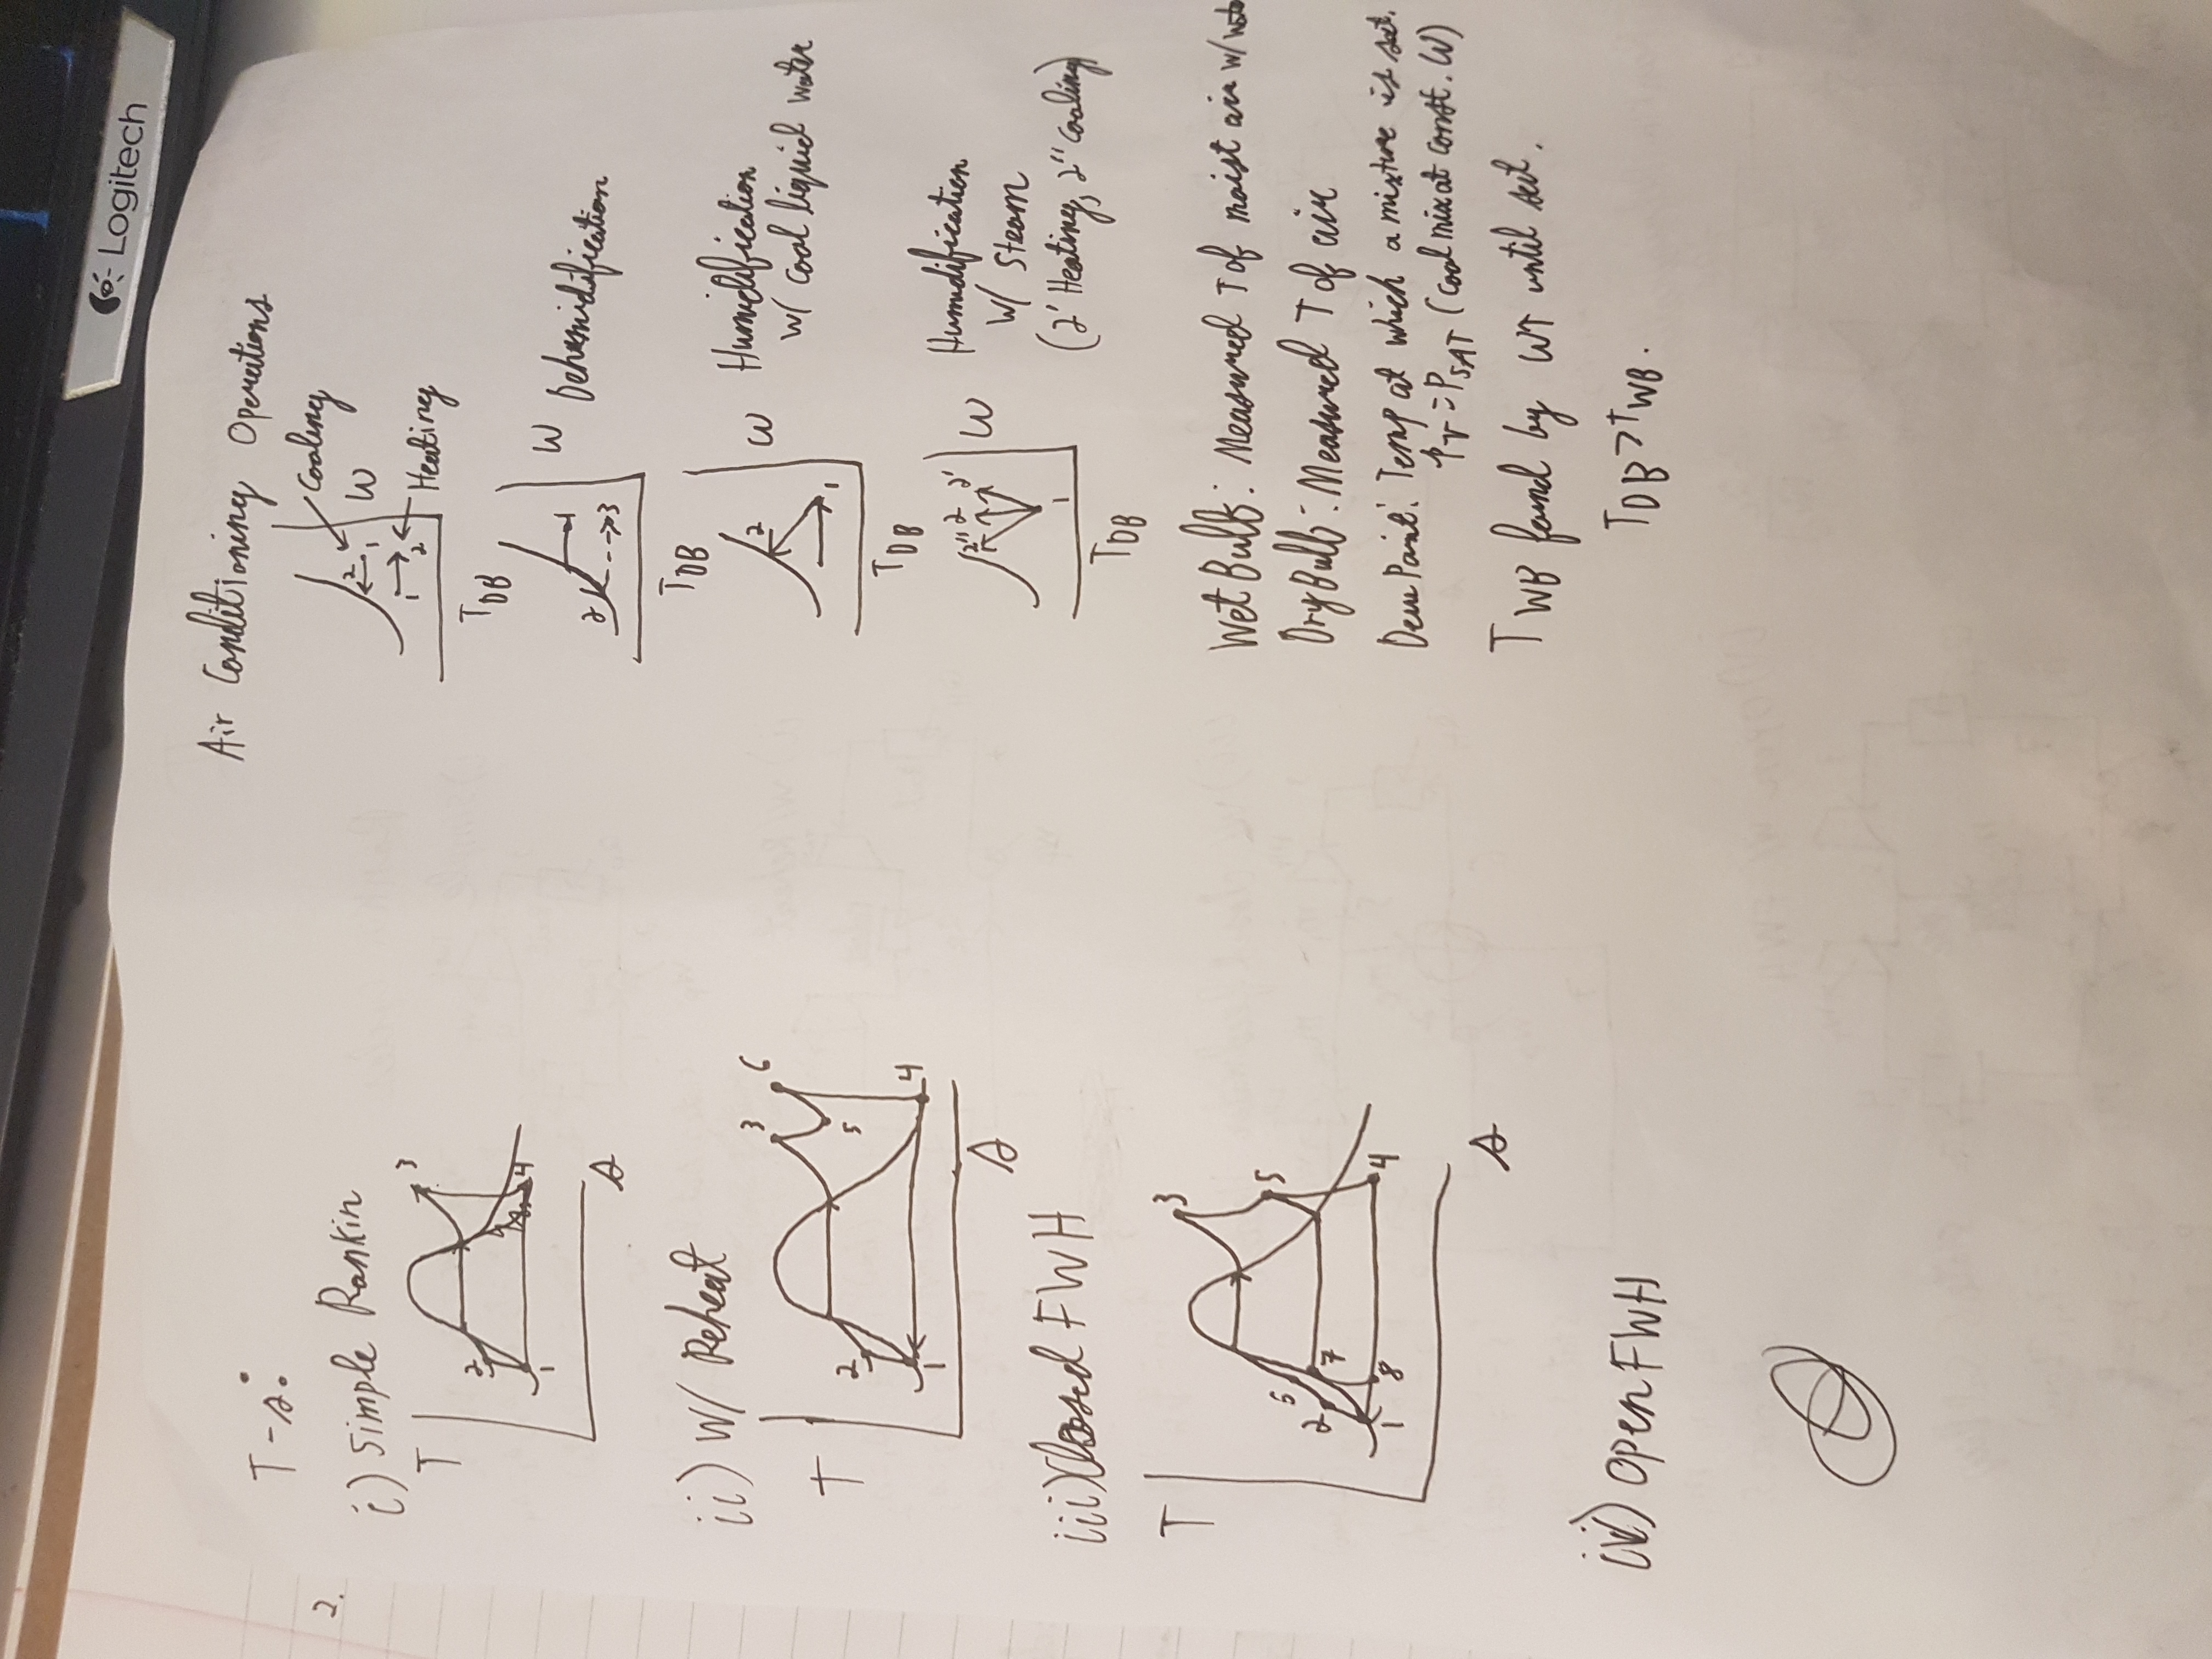 Logitech
2.
T-s:
i) Simple Rankin
T
3
2
1
4
s
ii) w/ Reheat
T
3
6
5
2
1
4
s
iii) Closed FWH
T
3
5
6
2
7
1
8
4
s
iv) Open FWH
Air Conditioning Operations
Cooling
2
1
W
1
2
Heating
TDB
W Dehumidification
1
2
3
TDB
W Humidification
w/ Cool liquid water
2
1
TDB
W Humidification
w/ Steam
(2' Heating, 2" Cooling)
2" 2 2'
1
TDB
Wet Bulb: Measured T of moist air w/
Dry Bulb: Measured T of air
Dew Point: Temp at which a mixture is sat.
Pv = PSAT (Cool mix at const. W)
TWB found by W↑ until sat.
TDB > TWB.